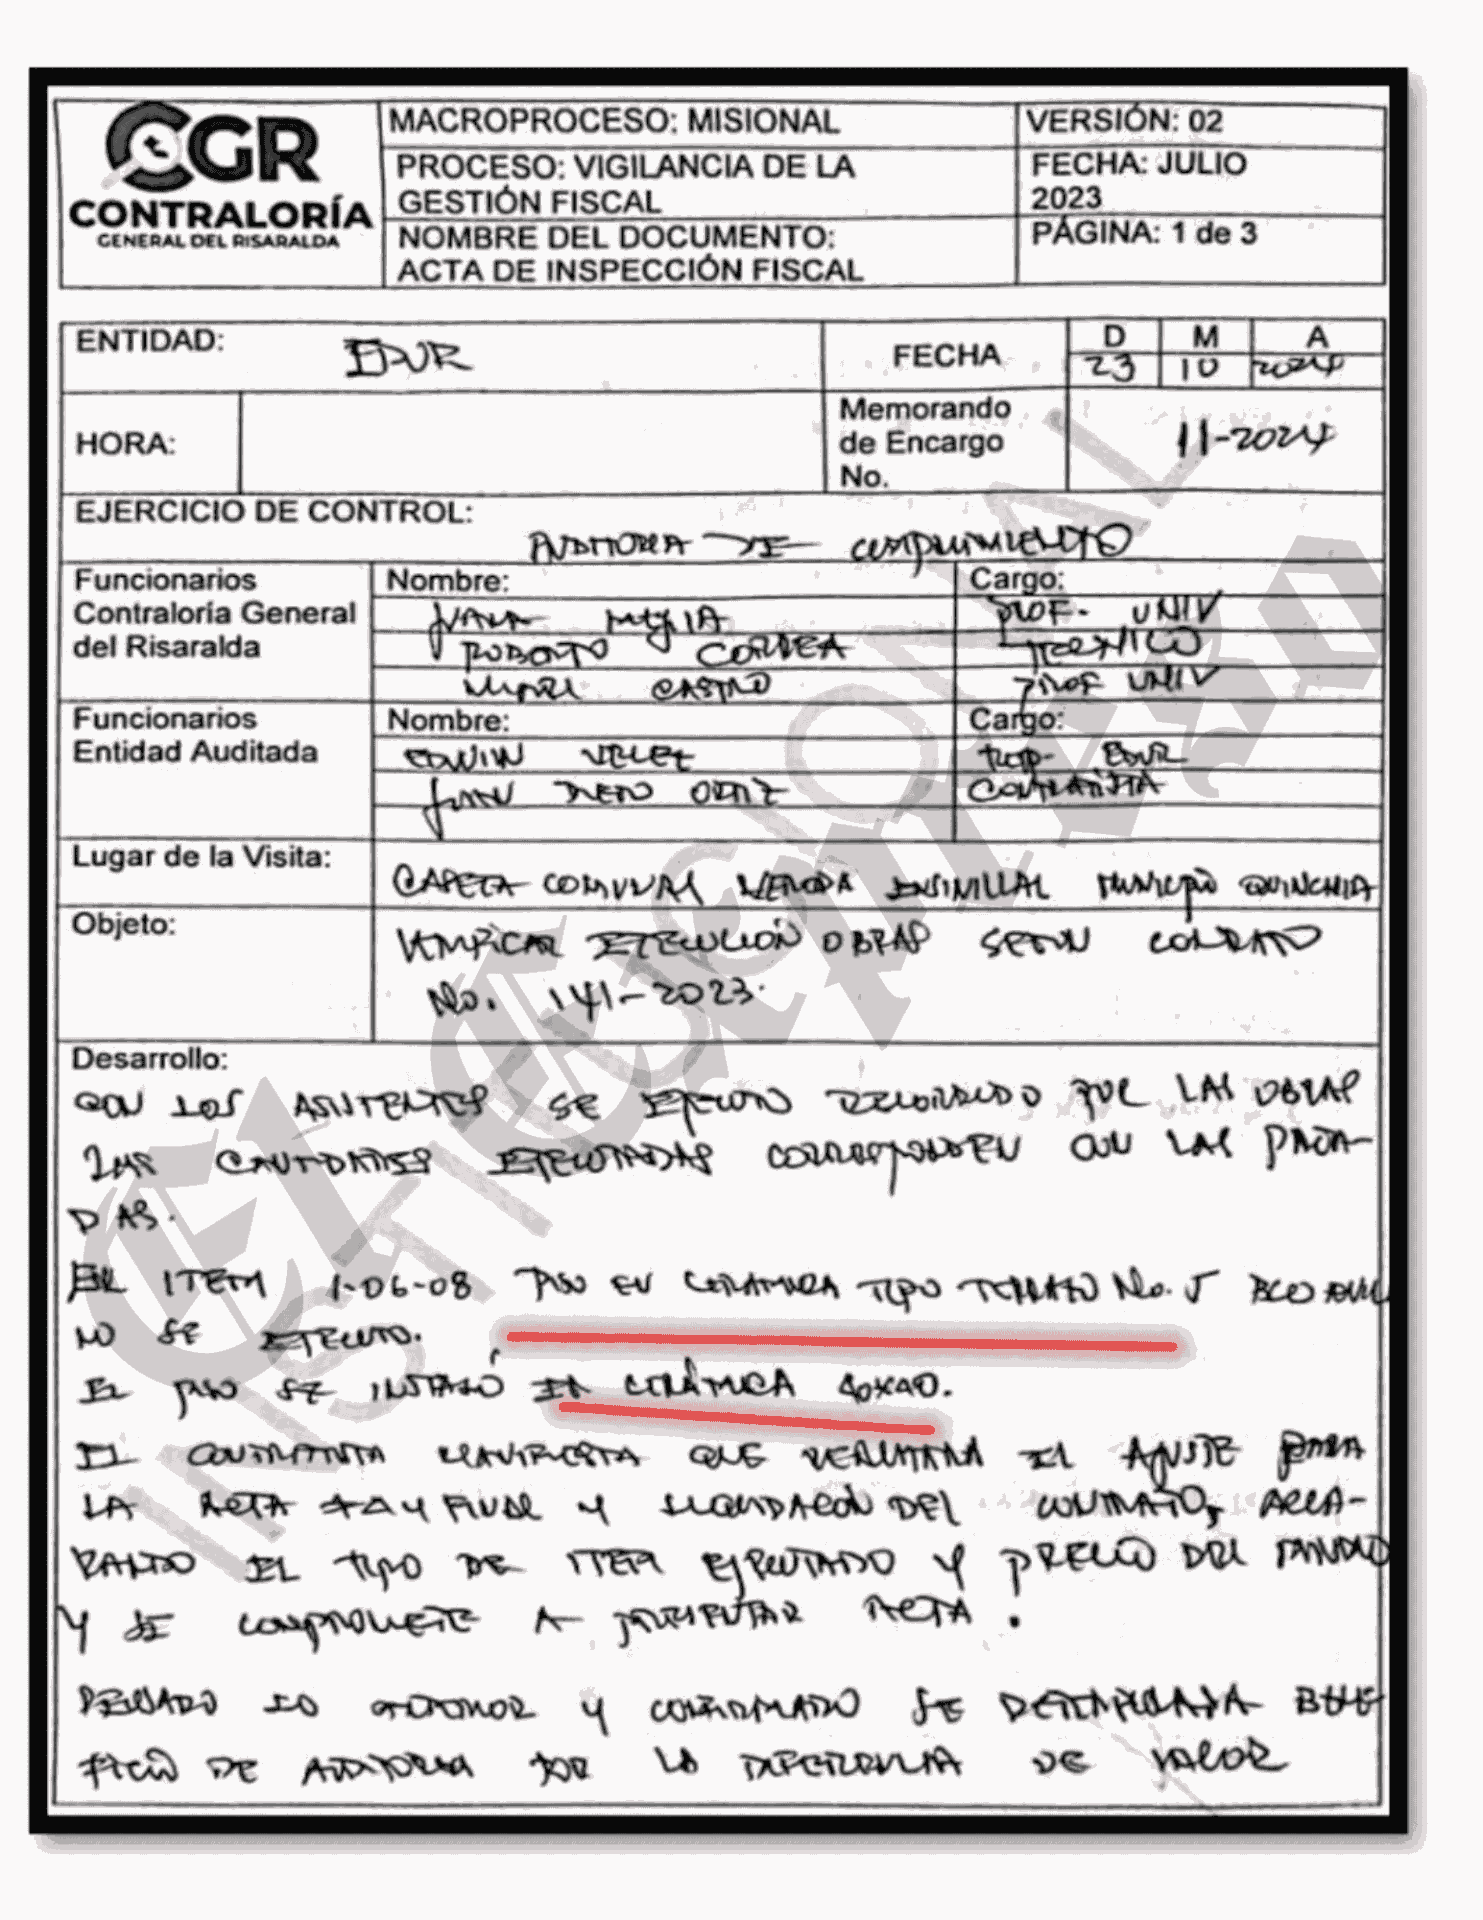 CGR
CONTRALORÍA
GENERAL DEL RISARALDA
MACROPROCESO: MISIONAL
PROCESO: VIGILANCIA DE LA
GESTIÓN FISCAL
NOMBRE DEL DOCUMENTO:
ACTA DE INSPECCIÓN FISCAL
VERSIÓN: 02
FECHA: JULIO
2023
PÁGINA: 1 de 3
ENTIDAD: EDUR
FECHA
D M A
23 10 2024
HORA:
Memorando
de Encargo
No.
11-2024
EJERCICIO DE CONTROL:
AUDITORIA DE CUMPLIMIENTO
Funcionarios
Contraloría General
del Risaralda
Nombre: Cargo:
MEJIA PROF. UNIV
ROBERTO CORREA TECNICO
CASTRO PROF UNIV
Funcionarios
Entidad Auditada
Nombre: Cargo:
EDWIN VELEZ EDUR
JUAN DIEGO ORTIZ CONTRATISTA
Lugar de la Visita:
CASETA COMUNAL VEREDA ENSENILLAL MUNICIPIO QUINCHIA
Objeto:
VERIFICAR EJECUCIÓN OBRAS SEGUN CONTRATO
No. 141-2023.
Desarrollo:
CON LOS ASISTENTES SE EFECTUO RECORRIDO POR LAS OBRAS
LAS CANTIDADES EJECUTADAS CORRESPONDEN CON LAS PAGA-
DAS.
EL ITEM 1-06-08 PISO EN CERAMICA TIPO TERRAZO No. 5 BCO
NO SE EJECUTO.
EL PISO SE INSTALÓ EN CERÁMICA 40X40.
EL CONTRATISTA MANIFIESTA QUE REALIZARA EL AJUSTE PARA
LA ACTA Y FINAL Y LIQUIDACIÓN DEL CONTRATO, ACLA-
RANDO EL TIPO DE ITEM EJECUTADO Y PRECIO DEL
Y SE COMPROMETE A PRESENTAR ACTA.
REVISADO LO ANTERIOR Y CONFIRMADO SE BENE
FICIO DE AUDITORIA POR LA DIFERENCIA DE VALOR
El Expreso